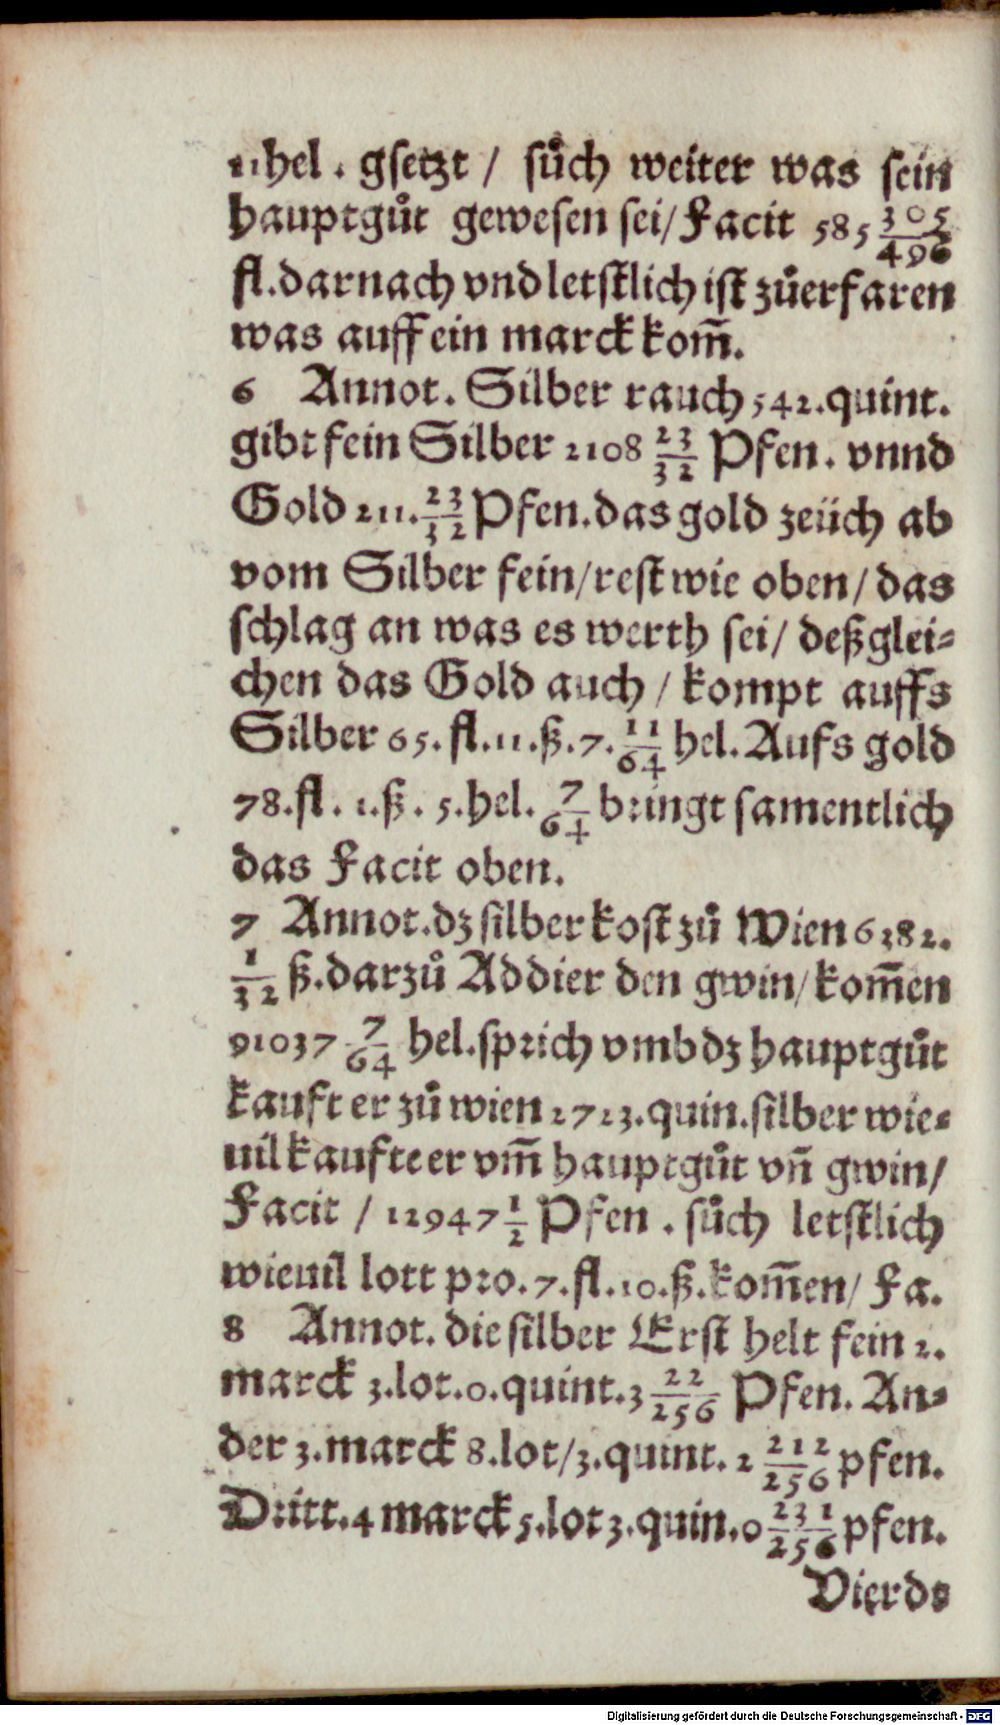 11 hel. gsetzt / sůch weiter was sein
hauptgůt gewesen sei / Facit 585 305/496
fl. darnach vnd letstlich ist zůerfaren
was auff ein marck kom̃.
6 Annot. Silber rauch 542. quint.
gibt fein Silber 2108 23/32 Pfen. vnnd
Gold 211. 23/32 Pfen. das gold zeüch ab
vom Silber fein / rest wie oben / das
schlag an was es werth sei / deßglei-
chen das Gold auch / kompt auffs
Silber 65. fl. 11. ß. 7. 11/64 hel. Aufs gold
78. fl. 1. ß. 5. hel. 7/64 bringt samentlich
das Facit oben.
7 Annot. dz silber kost zů Wien 6382.
1/32 ß. darzů Addier den gwin / kom̃en
91037 7/64 hel. sprich vmb dz hauptgůt
kauft er zů wien 1713. quin. silber wie-
uil kaufte er vm̃ hauptgůt vñ gwin /
Facit / 12947 1/2 Pfen. sůch letstlich
wieuil lott pro. 7. fl. 10. ß. kom̃en / Fa.
8 Annot. die silber Erst helt fein 2.
marck 3. lot. 0. quint. 3 22/256 Pfen. An-
der 3. marck 8. lot / 3. quint. 2 212/256 pfen.
Dritt. 4 marck 5. lot 3. quin. 0 231/256 pfen.
Vierds
Digitalisierung gefördert durch die Deutsche Forschungsgemeinschaft - DFG